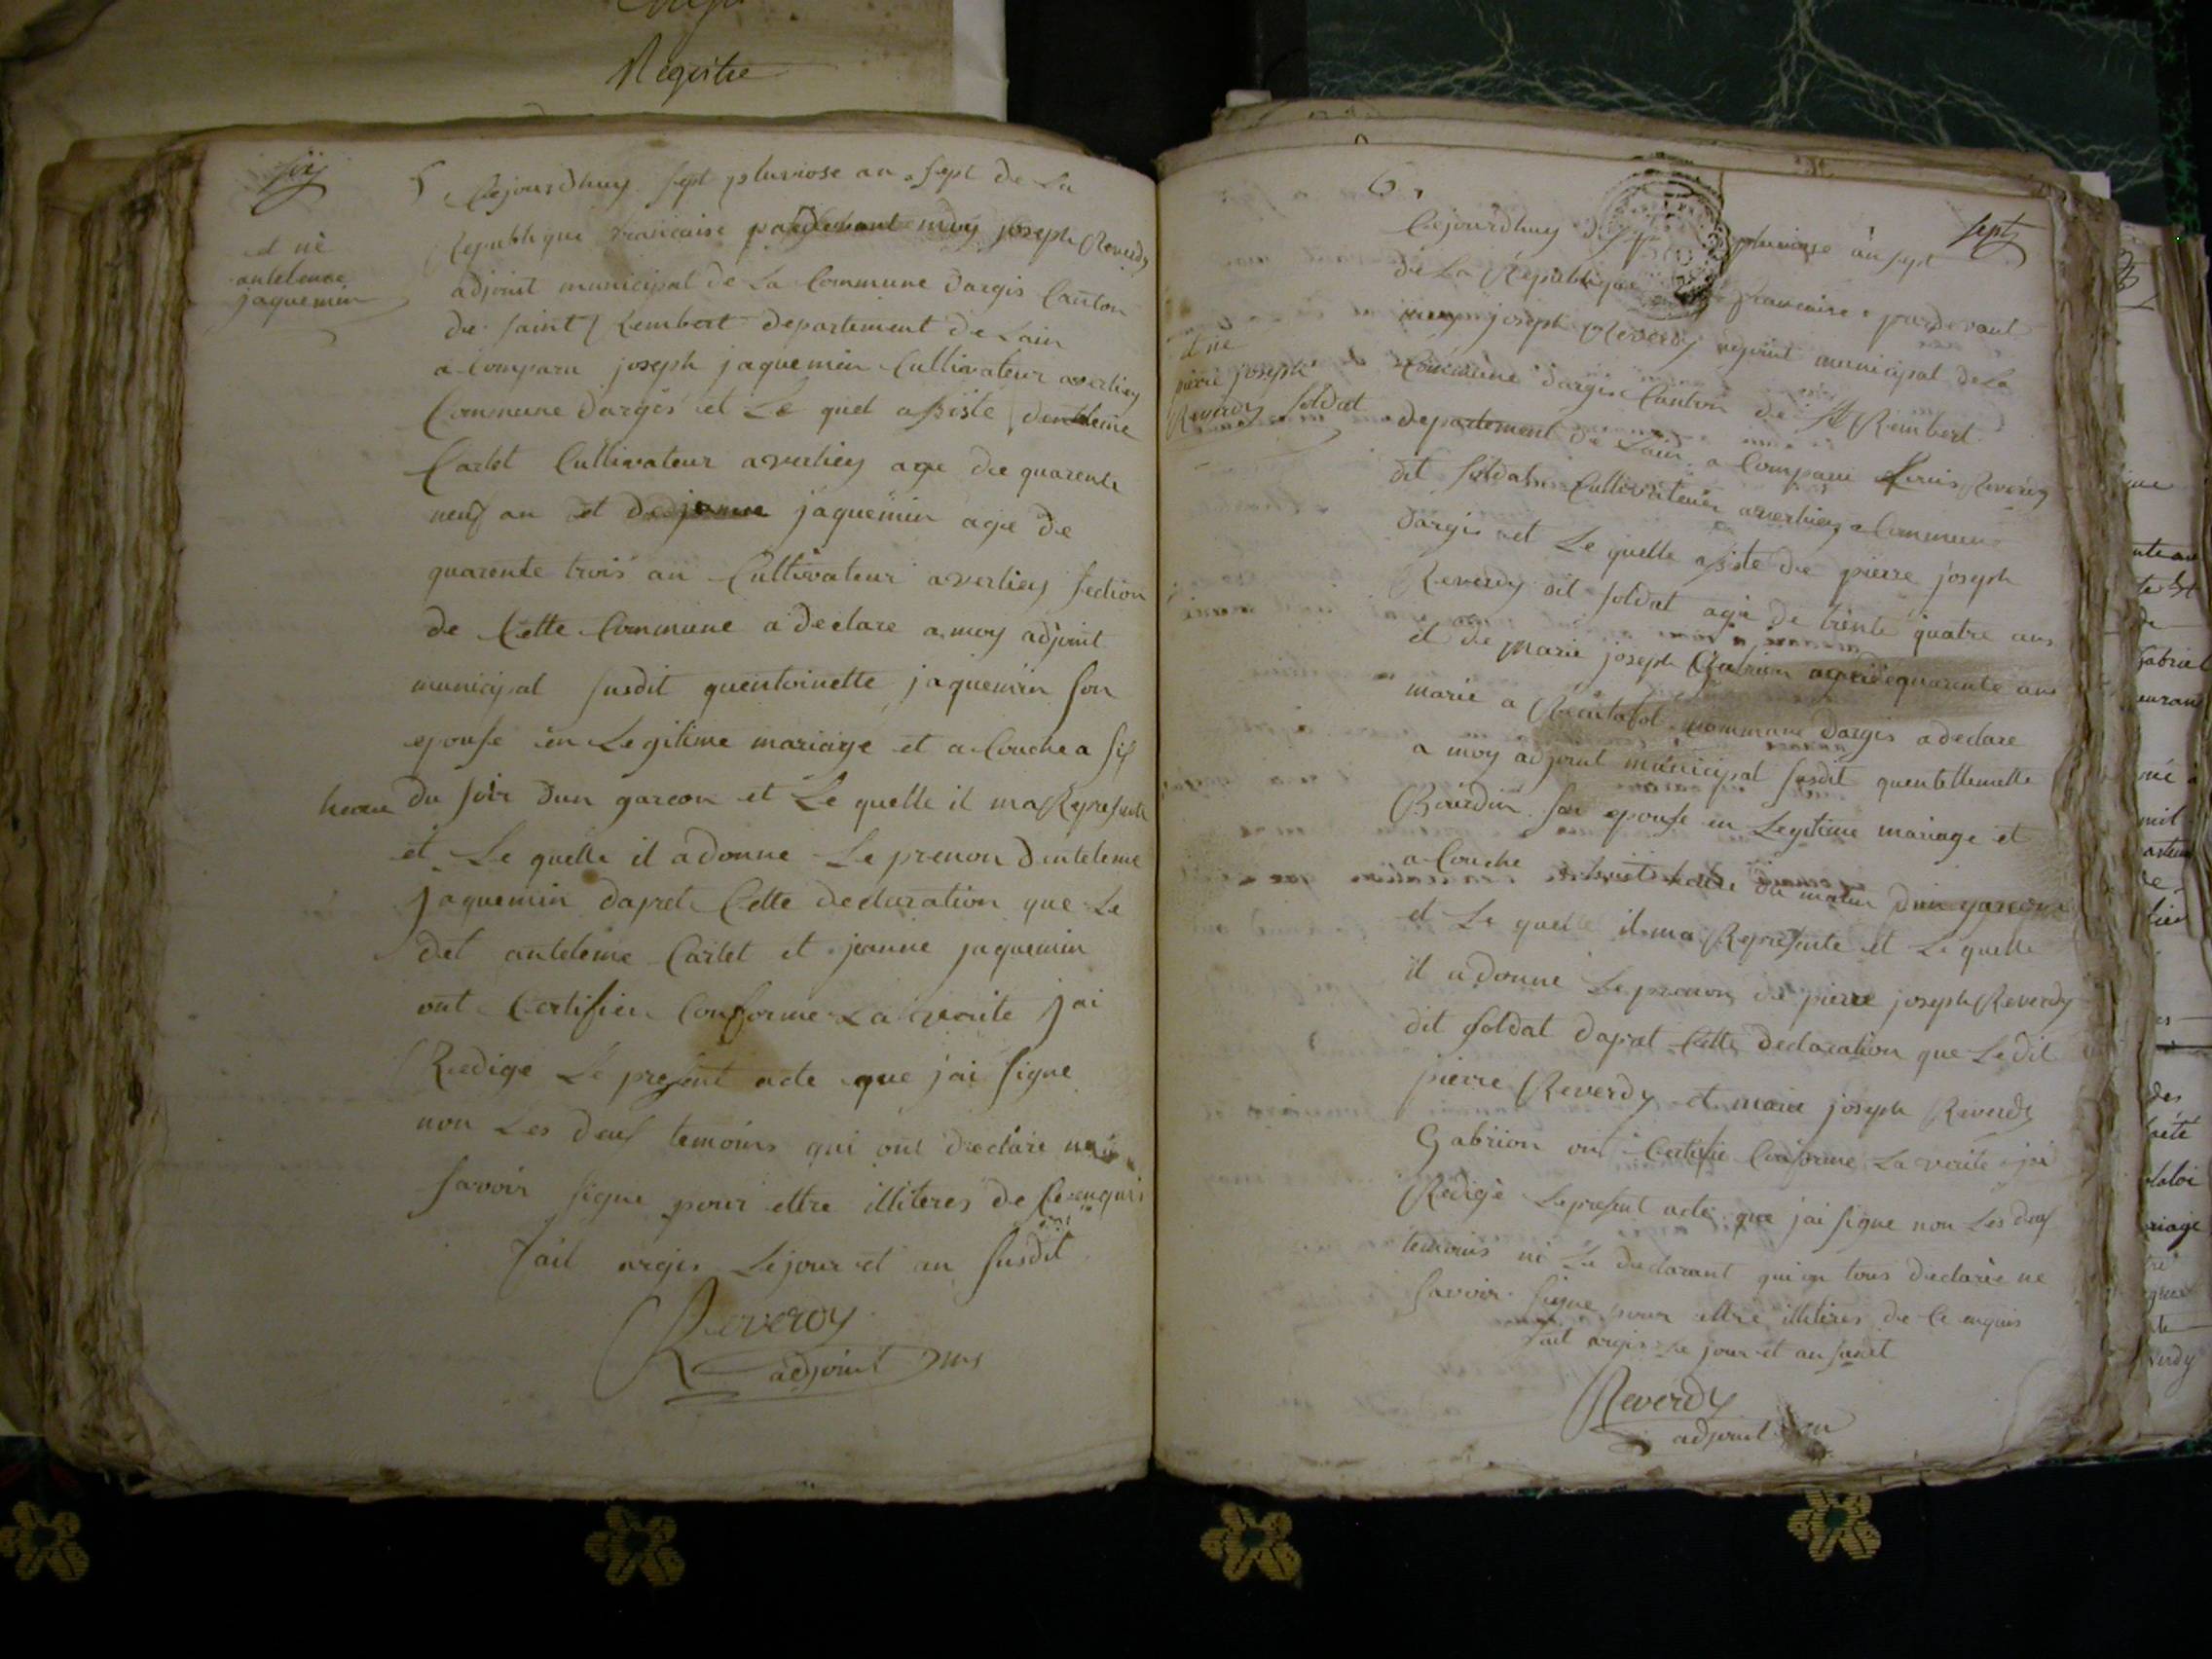 Registre
six
et né
anteleme
jaquemin
5 Cejourdhuy sept pluviose an sept de La
Republique francaise pardevant moy joseph Reverdy
adjoint municipal de La Commune dargis Canton
de saint Rembert departement de Lain
a Comparu joseph jaquemin Cultivateur averliey
Commune dargis et Le quel assiste danteleme
Carlet Cultivateur averliey age de quarente
neuf an et de jeanne jaquemin agee de
quarente trois an Cultivateur averliey section
de Cette Commune a declare a moy adjoint
municipal susdit quentoinette jaquemin son
epouse en Legitime mariage et a Couche a six
heure du soir dun garcon et Le quelle il ma Represente
et Le quelle il adonne Le prenon danteleme
jaquemin dapret Cette declaration que Le
det anteleme Carlet et jeanne jaquemin
ont Certifier Conforme La verite jai
Redige Le present acte que jai signe
non Les deux temoins qui ont declare ne
savoir signe pour ettre illiteres de Ce enquis
fait argis Lejour et an susdit
Reverdy
adjoint
6
sept
Cejourdhuy pluviose an sept
de La Republique francaise pardevant
moy joseph Reverdy adjoint municipal de La
et né
pierre joseph
Reverdy soldat
Commune dargis Canton de St Rembert
departement de Lain a Comparu Reverdy
dit soldat Cultivateur averliey Commune
dargis et Le quelle assiste de pierre joseph
Reverdy dit soldat age de trente quatre ans
et de marie joseph Gabrion agee de quarente ans
marie a commune dargis a declare
a moy adjoint municipal susdit
Bourdin son epouse en Legitime mariage et
a Couche a huit heure du matin dun garcon
et Le quelle il ma Represente et Le quelle
il adonne Le prenon de pierre joseph Reverdy
dit soldat dapret Cette declaration que Ledit
pierre Reverdy et marie joseph Reverdy
Gabrion ont Certifie Conforme La verite jai
Redige Le present acte que jai signe non Les deux
temoins ni Le declarant qui on tous declaré ne
savoir signe pour ettre illiteres de Ce enquis
fait argis Le jour et an susdit
Reverdy
adjoint